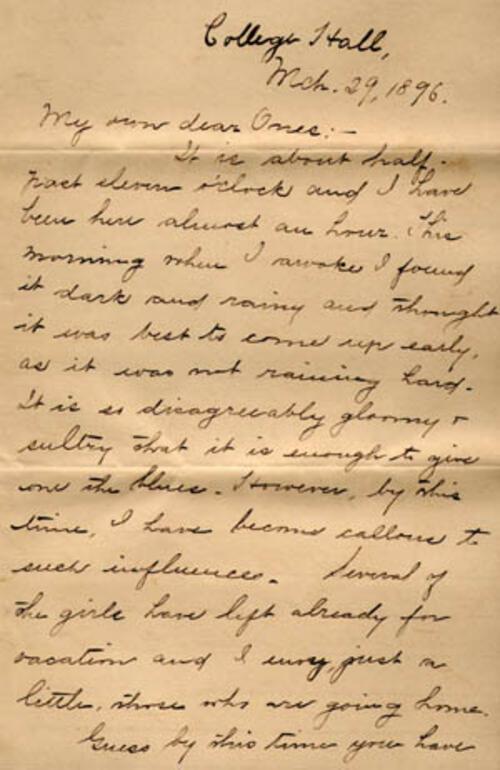 College Hall,
Mch. 29, 1896.
My own dear Ones:—
It is about half-
past eleven o'clock and I have
been here almost an hour. This
morning when I awoke I found
it dark and rainy and thought
it was best to come up early,
as it was not raining hard.
It is so disagreeably gloomy &
sultry that it is enough to give
one the blues. However, by this
time, I have become callous to
such influences. Several of
the girls have left already for
vacation and I envy, just a
little, those who are going home.
Guess by this time you have